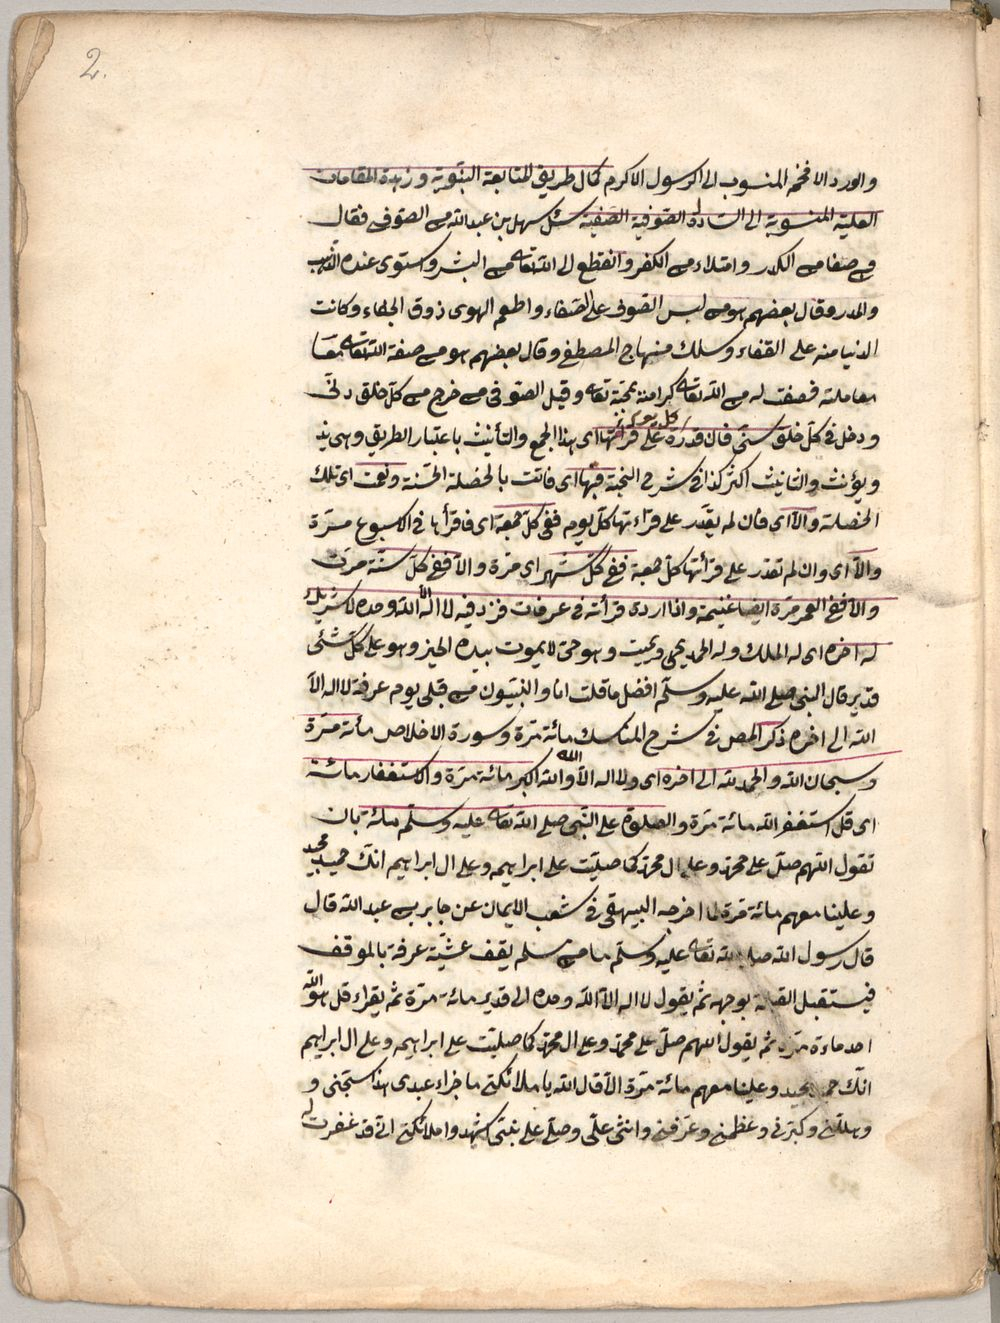 2.
والورد الافخم المنسوب الى الرسول الاكرم كمال طريق المتابعة النبوية وزبدة المقامات
العلية المنسوبة الى السادة الصوفية الصفية سئل سهل بن عبدالله من الصوفى فقال
من صفا من الكدر وامتلاء من الفكر وانقطع الى الله تعالى من البشر واستوى عنده الذهب
والمدر وقال بعضهم هو من لبس الصوف على الصفاء واطعم الهوى ذوق الجفاء وكانت
الدنيا منه على القفاء وسلك منهاج المصطفى وقال بعضهم هو من صفة الله تعالى معا
معاملته فصفت له من الله تعالى كرامته تعالى وقيل الصوفى من خرج من كل خلق دنى
ودخل فى كل خلق سنى فان قدرة على قرأتها كل يوم اى هذا الجمع والتأنيث باعتبار الطريق وهى يذ
ويؤنث والتانيث اكثر كذا فى شرح النخبة فبها اى فاتت بالخصلة الحسنة ونعمت اى تلك
الخصلة والا اى فان لم يقدر على قراءتها كل يوم ففى كل جمعة اى فاقرأها فى الاسبوع مرة
والا اى وان لم تقدر على قرأتها كل جمعة ففى كل شهر اى مرة والا ففى كل سنة مرت
والا ففى العمر مرة ايضا غنيمة واذا اردت قرأته فى عرفات فزد فيه لا اله الا الله وحده لا شريك
له اخره اى له الملك وله الحمد يحيى ويميت وهو حى لا يموت بيده الخير وهو على كل شئى
قدير قال النبى صلى الله عليه وسلم افضل ما قلت انا والنبيون من قبلى يوم عرفة لا اله الا
الله الى اخره ذكر المص فى شرح المناسك مائة مرة وسورة الاخلاص مأئة مرة
وسبحان الله والحمد لله الى اخره اى ولا اله الا الله والله اكبر مائة مرة والاستغفار مائة
اى قل استغفر الله مائة مرة والصلوة على النبى صلى الله تعالى عليه وسلم مائة بان
تقول اللهم صل على محمد وعلى ال محمد كما صليت على ابراهيم وعلى ال ابراهيم انك حميد مجيد
وعلينا معهم مائة مرة لما اخرجه البيهقى فى شعب الايمان عن جابر بن عبد الله قال
قال رسول الله صلى الله تعالى عليه وسلم ما من مسلم يقف عشية عرفة بالموقف
فيستقبل القبلة بوجهه ثم يقول لا اله الا الله وحده الى قدير مائة مرة ثم يقراء قل هو الله
احد ماءة مرة ثم يقول اللهم صل على محمد وعلى ال محمد كما صليت على ابراهيم وعلى ال ابراهيم
انك حميد مجيد وعلينا معهم مائة مرة الا قال الله يا ملائكتى ما جزاء عبدى هذا سبحنى و
وهللنى وكبرنى وعظمنى وعرفنى واثنى على وصلى على نبيى اشهدوا ملائكتى انى قد غفرت له